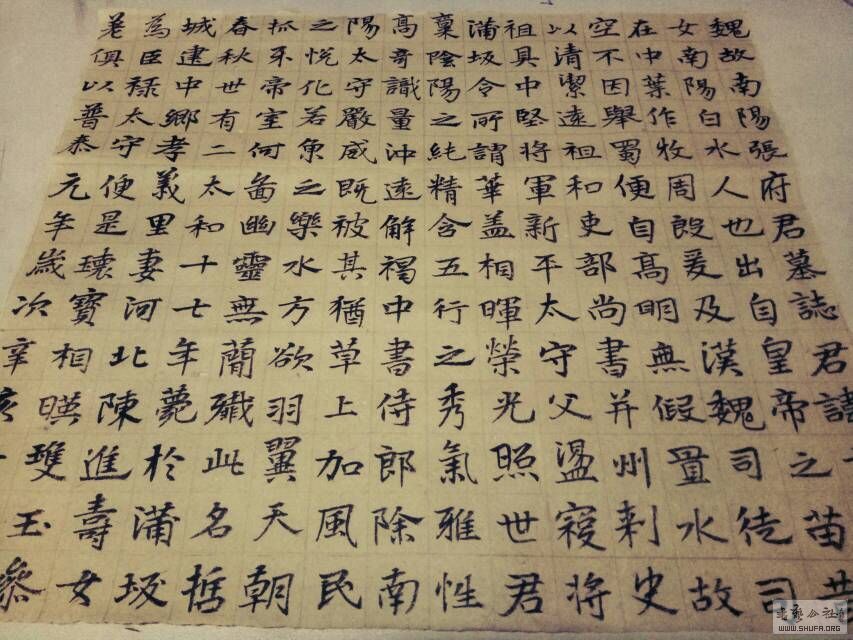 魏故南陽張府君墓誌君諱
女南陽白水人也出自皇帝之苗昔
在中葉作牧周殷爰及漢魏司徒司
空不因舉蜀便自高明無假置水故
以清潔遠祖和吏部尚書并州刺史
祖具中堅將軍新平太守父盪寇將
蒲坂令所謂華蓋相暉榮光照世君
稟陰陽之純精含五行之秀氣雅性
高奇識量沖遠解褐中書侍郎除南
陽太守嚴威既被其猶草上加風民
之悅化若魚之樂水方欲羽翼天朝
抓牙帝室何啚幽靈無蕳殲此名哲
春秋世有二太和十七年薨於蒲坂
城建中鄉孝義里妻河北陳進壽女
為巨祿太守便是瓌寶相暎雙玉叅
老俱以普泰元年歲次辛亥
WWW.SHUFA.ORG